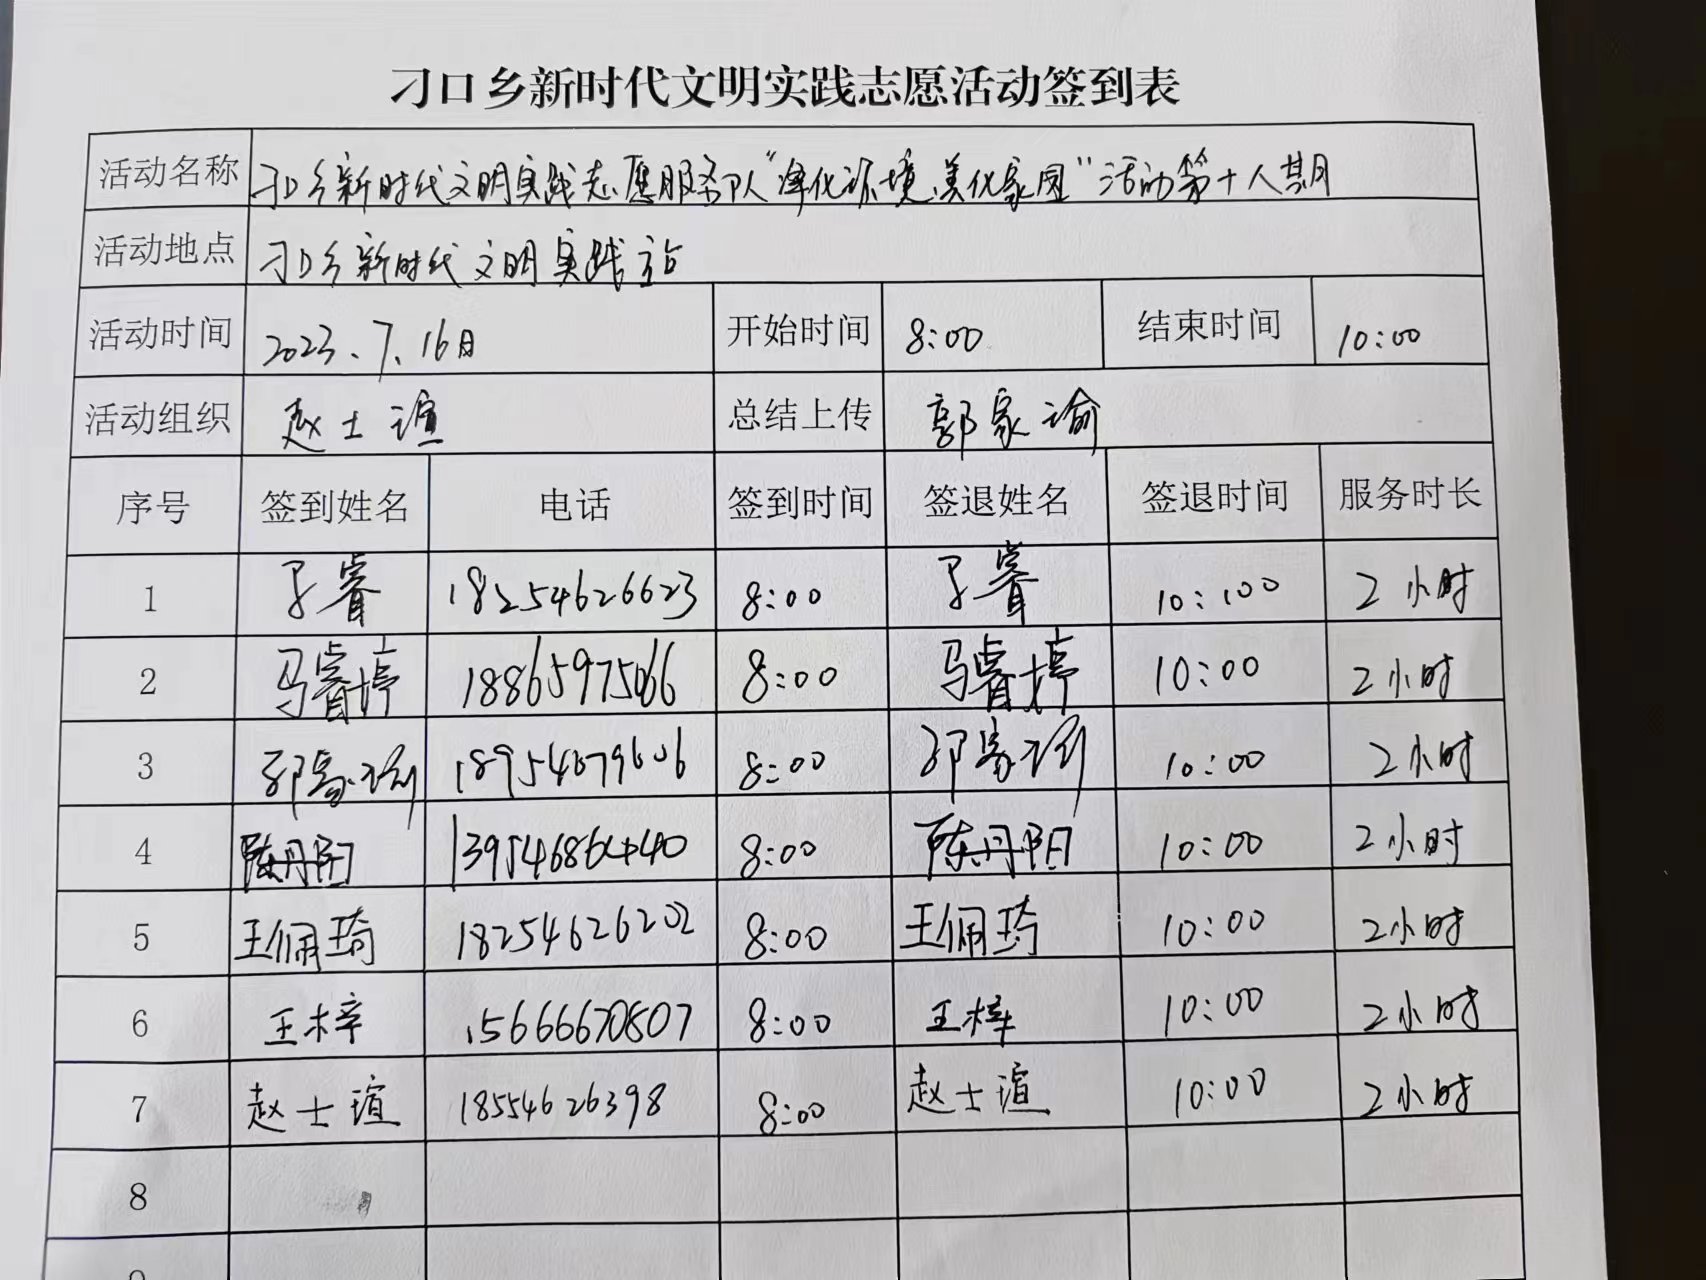 刁口乡新时代文明实践志愿活动签到表
活动名称 刁口乡新时代文明实践志愿服务队“净化环境、美化家园”活动第十八期
活动地点 刁口乡新时代文明实践站
活动时间 2023.7.16日 开始时间 8:00 结束时间 10:00
活动组织 赵士谊 总结上传 郭家瑜
序号 签到姓名 电话 签到时间 签退姓名 签退时间 服务时长
1 睿 18254626623 8:00 睿 10:100 2小时
2 马睿婷 18865975066 8:00 马睿婷 10:00 2小时
3 18954679606 8:00 10:00 2小时
4 陈丹阳 13954686440 8:00 陈丹阳 10:00 2小时
5 王佩琦 18254626202 8:00 王佩琦 10:00 2小时
6 王梓 15666670807 8:00 王梓 10:00 2小时
7 赵士谊 18554626398 8:00 赵士谊 10:00 2小时
8